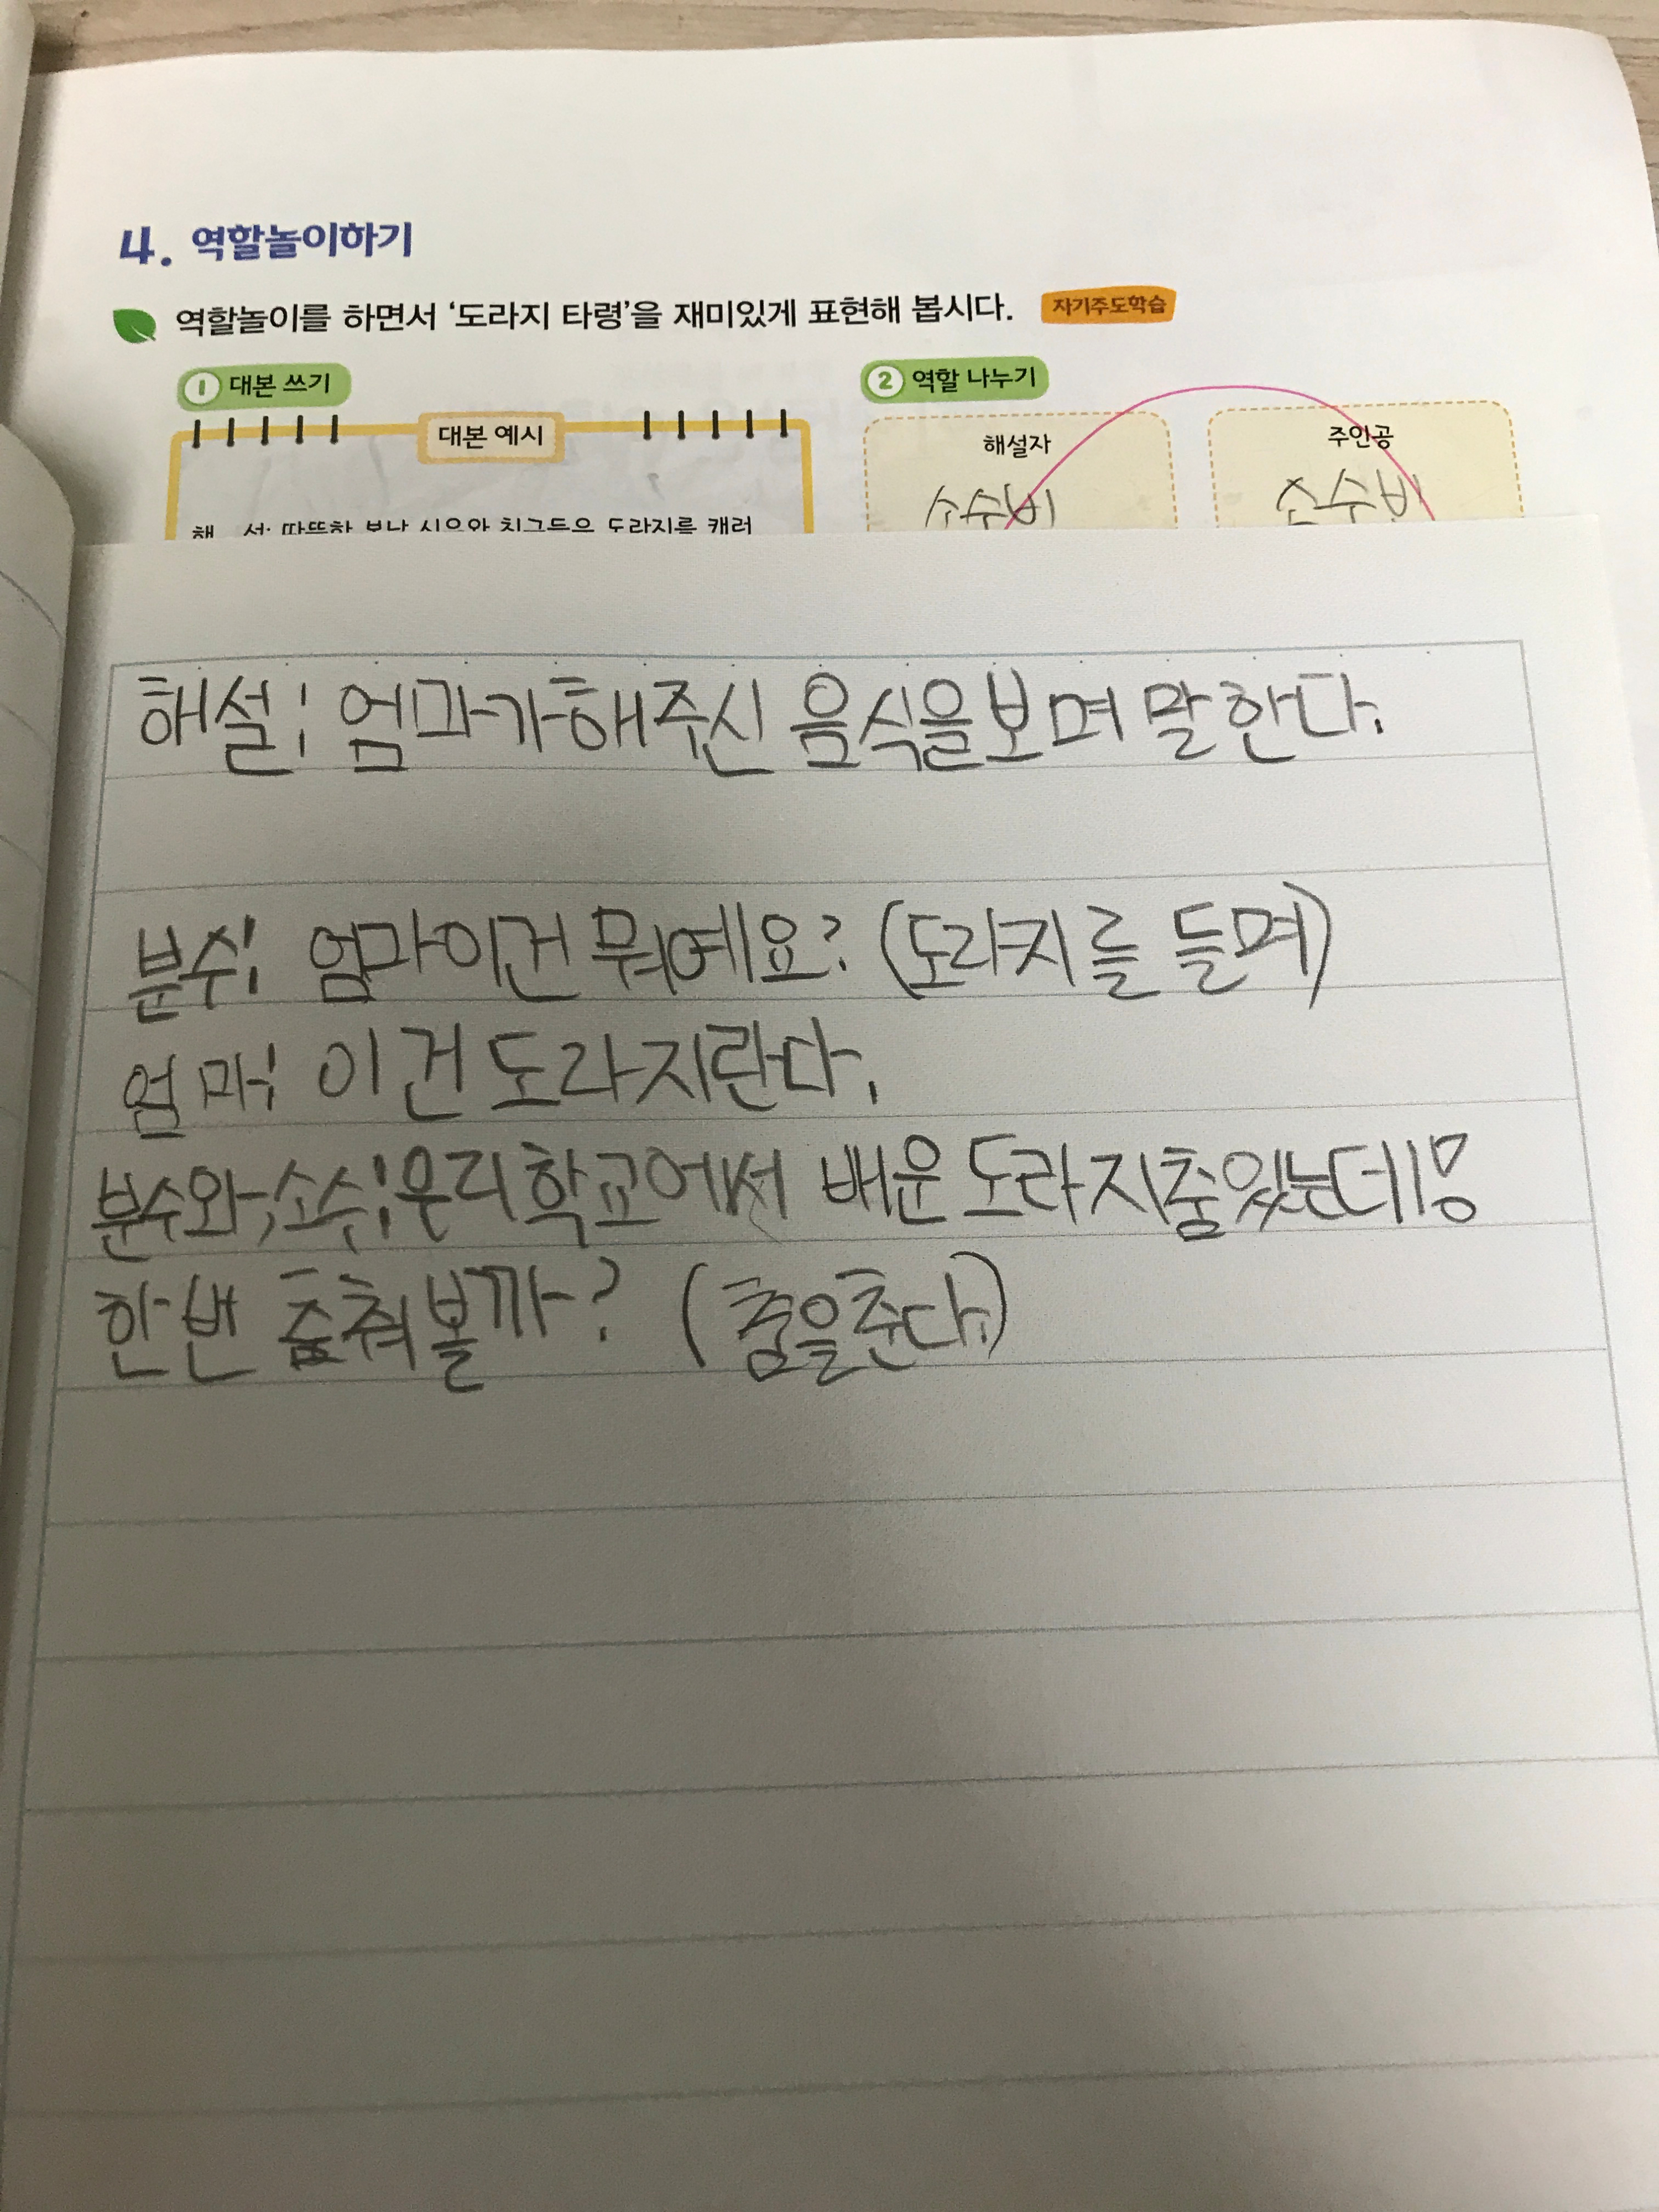 4. 역할놀이하기
역할놀이를 하면서 '도라지 타령'을 재미있게 표현해 봅시다. 자기주도학습
1 대본 쓰기
2 역할 나누기
대본 예시
해설자
주인공
소수빈
손수빈
해 설: 따뜻한 봄날 시윤와 친구들은 도라지를 캐러
해설: 엄마가해주신 음식을보며 말한다.
분수: 엄마이건 뭐예요? (도라지를 들며)
엄마: 이건도라지란다.
분수와,소수:우리학교에서 배운도라지춤있는데!!
한번 춤춰볼까? (춤을춘다.)